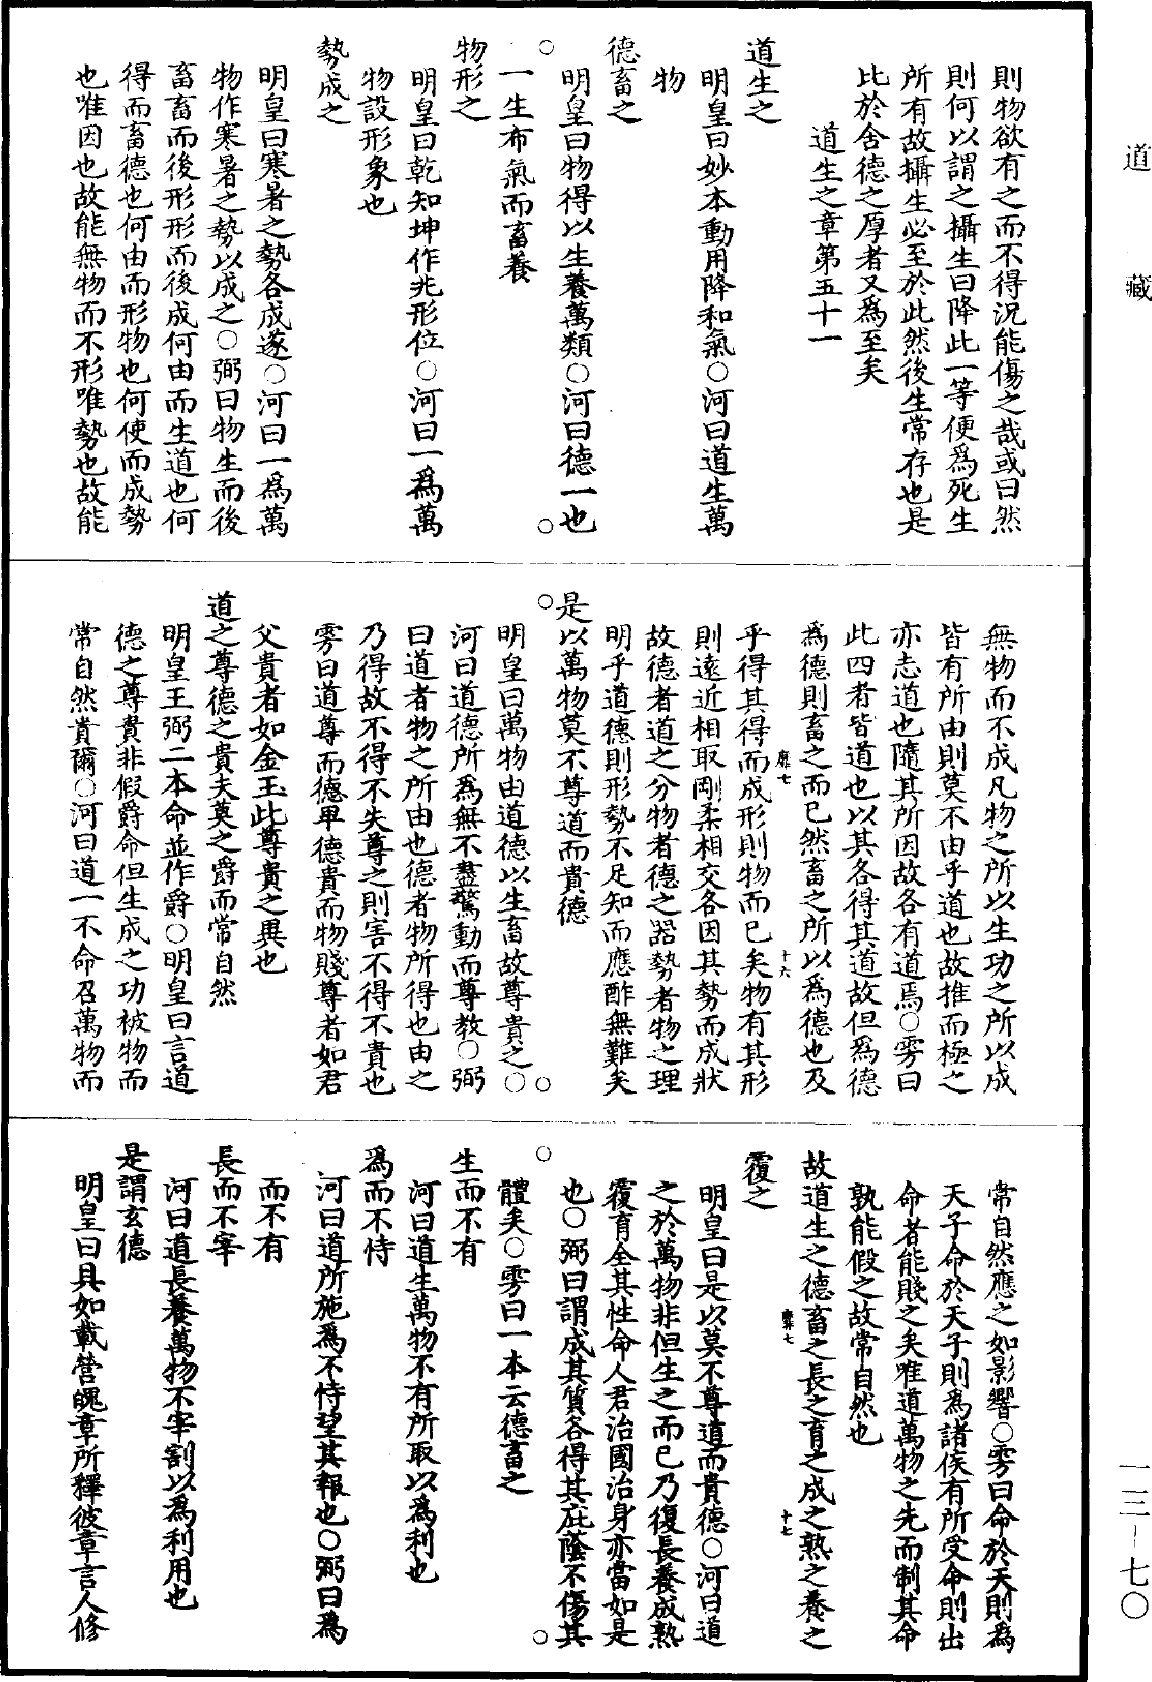 道藏
一三-七〇
則物欲有之而不得況能傷之哉或曰然
則何以謂之攝生曰降此一等便爲死生
所有故攝生必至於此然後生常存也是
比於舍德之厚者又爲至矣
道生之章第五十一
道生之
明皇曰妙本動用降和氣○河曰道生萬
物
德畜之
明皇曰物得以生養萬類○河曰德一也
一生布氣而畜養
物形之
明皇曰乾知坤作兆形位○河曰一爲萬
物設形象也
勢成之
明皇曰寒暑之勢各成遂○河曰一爲萬
物作寒暑之勢以成之○弼曰物生而後
畜畜而後形形而後成何由而生道也何
得而畜德也何由而形物也何使而成勢
也唯因也故能無物而不形唯勢也故能
無物而不成凡物之所以生功之所以成
皆有所由則莫不由乎道也故推而極之
亦志道也隨其所因故各有道焉○雱曰
此四者皆道也以其各得其道故但爲德
爲德則畜之而已然畜之所以爲德也及
靡七 十六
乎得其得而成形則物而已矣物有其形
則遠近相取剛柔相交各因其勢而成狀
故德者道之分物者德之器勢者物之理
明乎道德則形勢不足知而應酢無難矣
是以萬物莫不尊道而貴德
明皇曰萬物由道德以生畜故尊貴之○
河曰道德所爲無不盡驚動而尊教○弼
曰道者物之所由也德者物所得也由之
乃得故不得不失尊之則害不得不貴也
雱曰道尊而德卑德貴而物賤尊者如君
父貴者如金玉此尊貴之異也
道之尊德之貴夫莫之爵而常自然
明皇王弼二本命並作爵○明皇曰言道
德之尊貴非假爵命但生成之功被物而
常自然貴爾○河曰道一不命召萬物而
常自然應之如影響○雱曰命於天則爲
天子命於天子則爲諸侯有所受命則出
命者能賤之矣唯道萬物之先而制其命
孰能假之故常自然也
故道生之德畜之長之育之成之熟之養之
靡七 十七
覆之
明皇曰是以莫不尊道而貴德○河曰道
之於萬物非但生之而已乃復長養成熟
覆育全其性命人君治國治身亦當如是
也○弼曰謂成其質各得其庇蔭不傷其
體矣○雱曰一本云德畜之
生而不有
河曰道生萬物不有所取以爲利也
爲而不恃
河曰道所施爲不恃望其報也○弼曰爲
而不有
長而不宰
河曰道長養萬物不宰割以爲利用也
是謂玄德
明皇曰具如載營魄章所釋彼章言人修